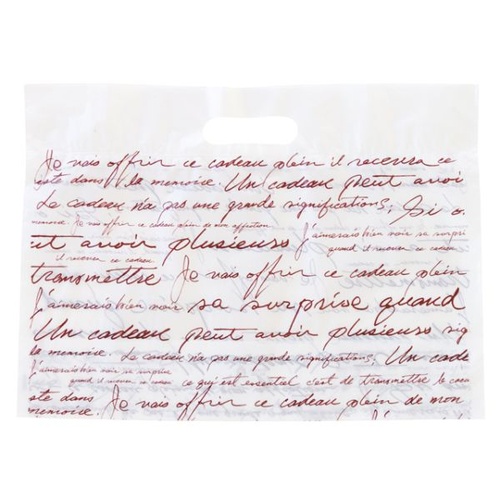 Je vais offrir ce cadeau plein il recevra ce
ste dans la memoire. Un cadeau peut avoir
Le cadeau n'a pas une grande significations, Si o
memoire. Je vais offrir ce cadeau plein de mon affection
ut avoir plusieurs j'aimerais bien voir sa surpri
quand il recevra ce cadeau
il recevra ce cadeau
transmettre Je vais offrir ce cadeau plein
j'aimerais bien voir sa surprise quand
Un cadeau peut avoir plusieurs sig
la memoire. Le cadeau n'a pas une grande significations, Un cade
j'aimerais bien voir sa surprise
quand il recevra ce cadeau ce qui est essentiel c'est de transmettre le coeu
ste dans Je vais offrir ce cadeau plein de mon
memoire.